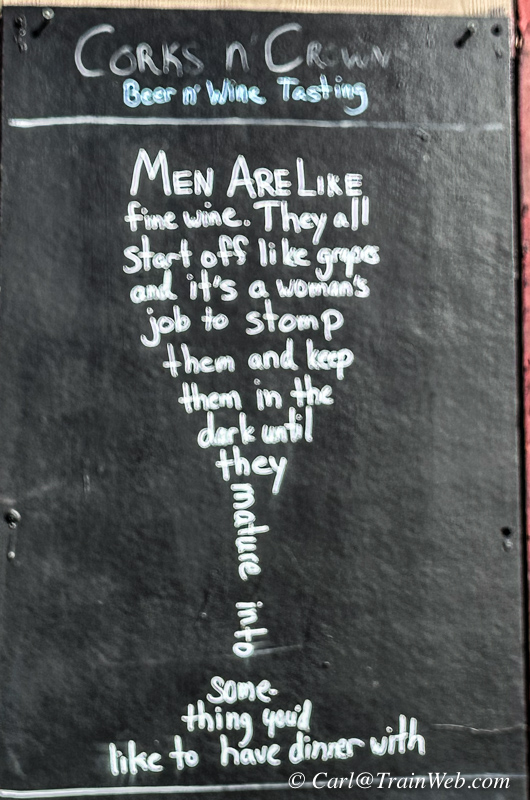 CORKS n' CROWN
Beer n' Wine Tasting
MEN ARE LIKE
fine wine. They all
start off like grapes
and it's a woman's
job to stomp
them and keep
them in the
dark until
they
mature into
some-
thing you'd
like to have dinner with
© Carl@TrainWeb.com